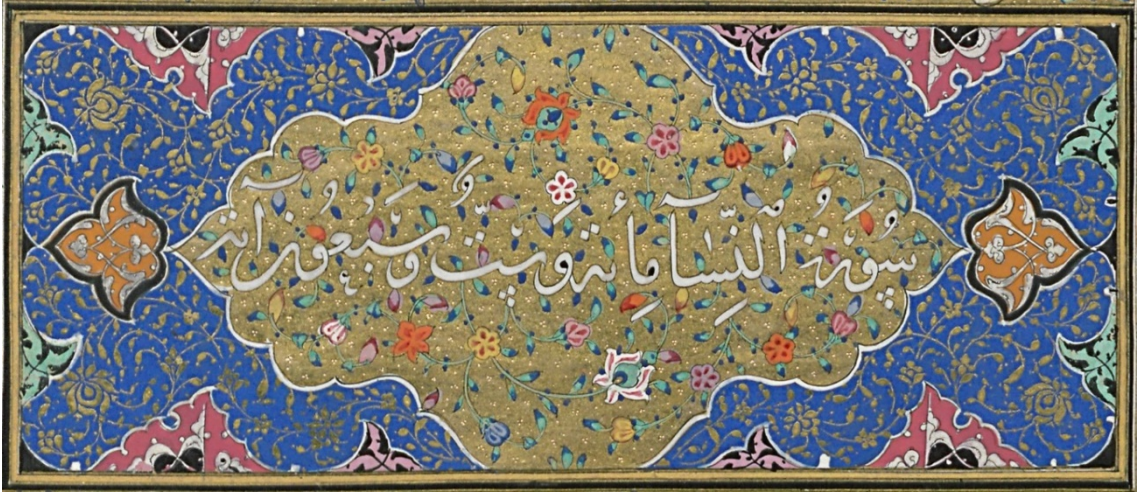 سُورَةُ ٱلنِّسَآ مِأَئة وَسِتّ وَسَبْعُونَ اٰيَة